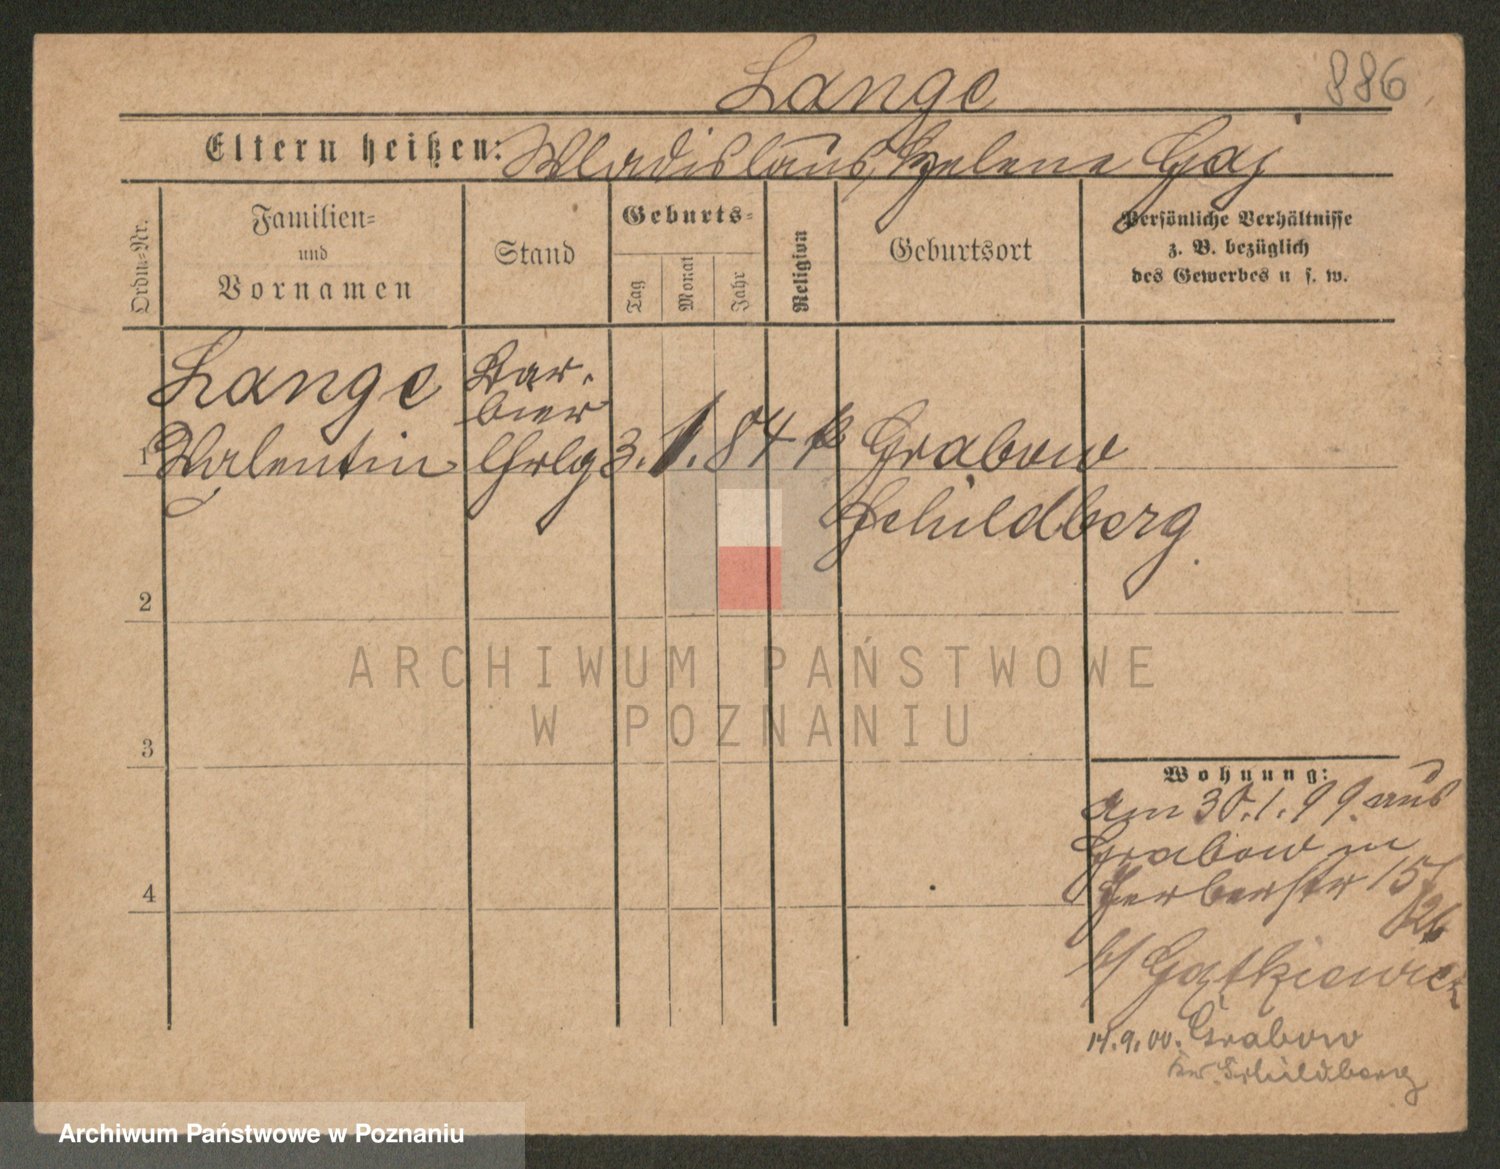 Lange
886
Eltern heißen: Wladislaus, Helene Gaj
Ordn.-Nr.
Familien-
und
Vornamen
Stand
Geburts-
Tag
Monat
Jahr
Religion
Geburtsort
Persönliche Verhältnisse
z. B. bezüglich
des Gewerbes u s. w.
Lange
Bar-
bier
1 Valentin Lhrlg 3. 1. 84 k Grabow
Schildberg
2
3
4
Wohnung:
am 30.1.99 aus
Grabow n
Gerberstr 15/
b/
14.9.00. Grabow
Kr. Schildberg
ARCHIWUM PAŃSTWOWE
W POZNANIU
Archiwum Państwowe w Poznaniu